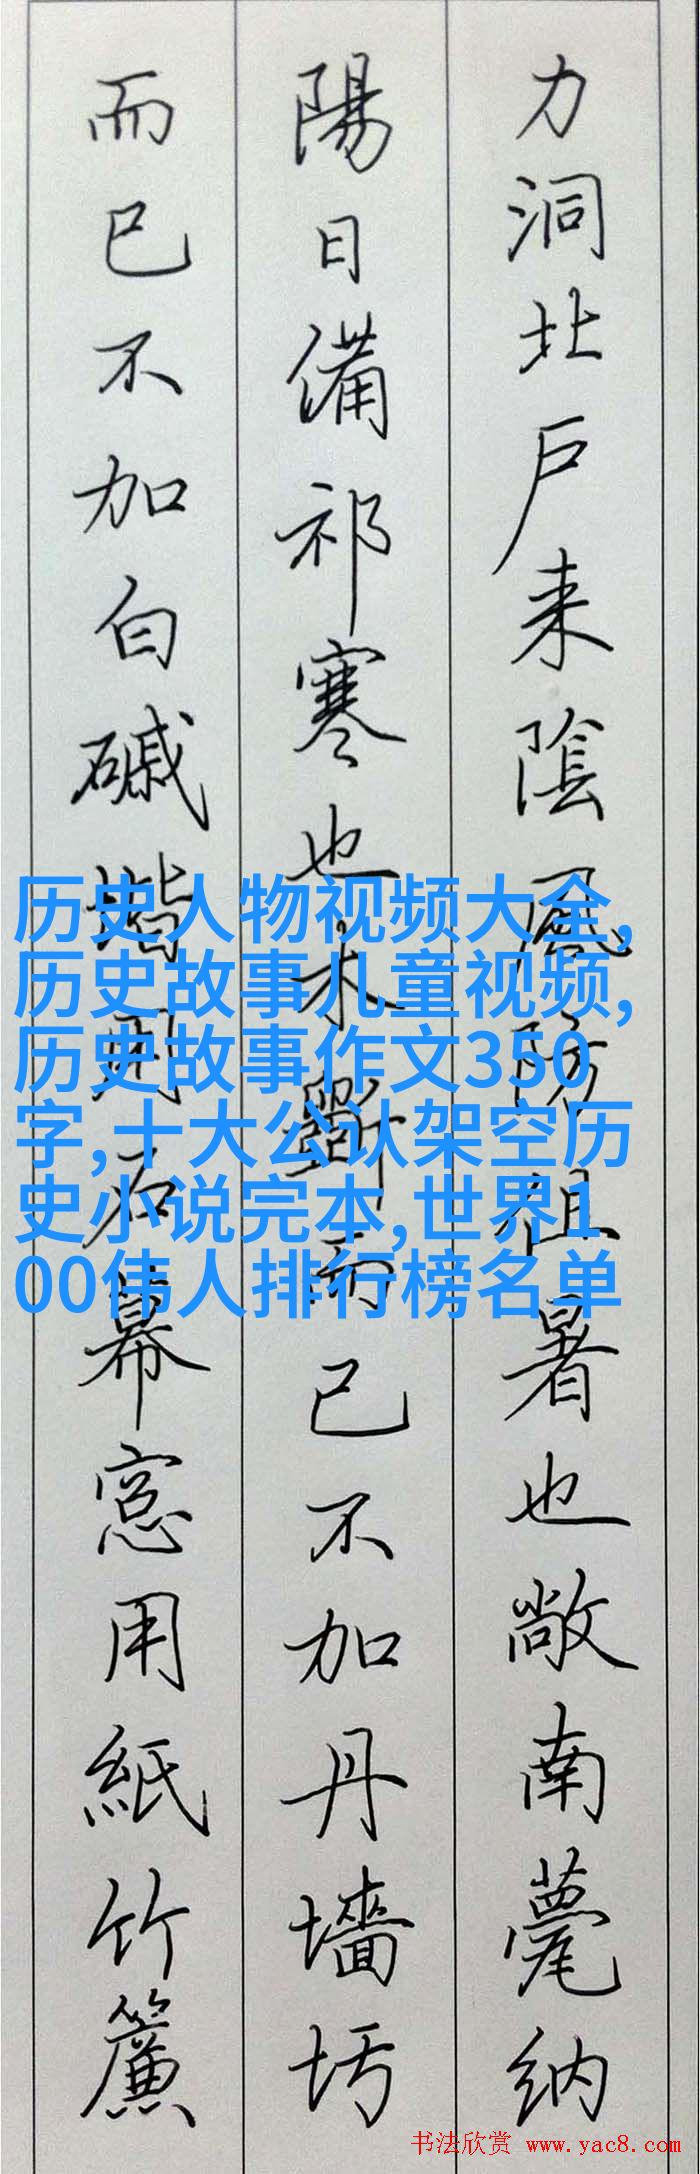 力洞北户来陰風防徂暑也敞南甍纳
陽日備祁寒也木斲而已不加丹墻圬
而已不加白磩堦用石幕窓用紙竹簾
历史人物视频大全,
历史故事儿童视频,
历史故事作文350
字,十大公认架空历
史小说完本,世界1
00伟人排行榜名单
书法欣赏 www.yac8.com